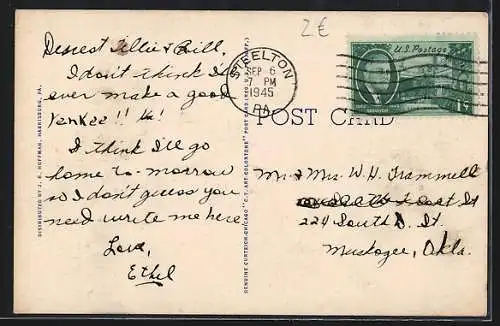 2€
Dearest Tillie & Bill,
I don't think I'd
ever make a good
Yankee!! Ha!
I think I'll go
home to-morrow
so I don't guess you
need write me here
Love,
Ethel
STEELTON
SEP 6
7 PM
1945
PA.
U.S. Postage
1¢
POST CARD
Mr & Mrs. W. H. Trammell
224 South D. St.
Muskogee, Okla.
DISTRIBUTED BY J. B. HOFFMAN, HARRISBURG, PA.
GENUINE CURTEICH-CHICAGO "C.T. ART-COLORTONE" POST CARD